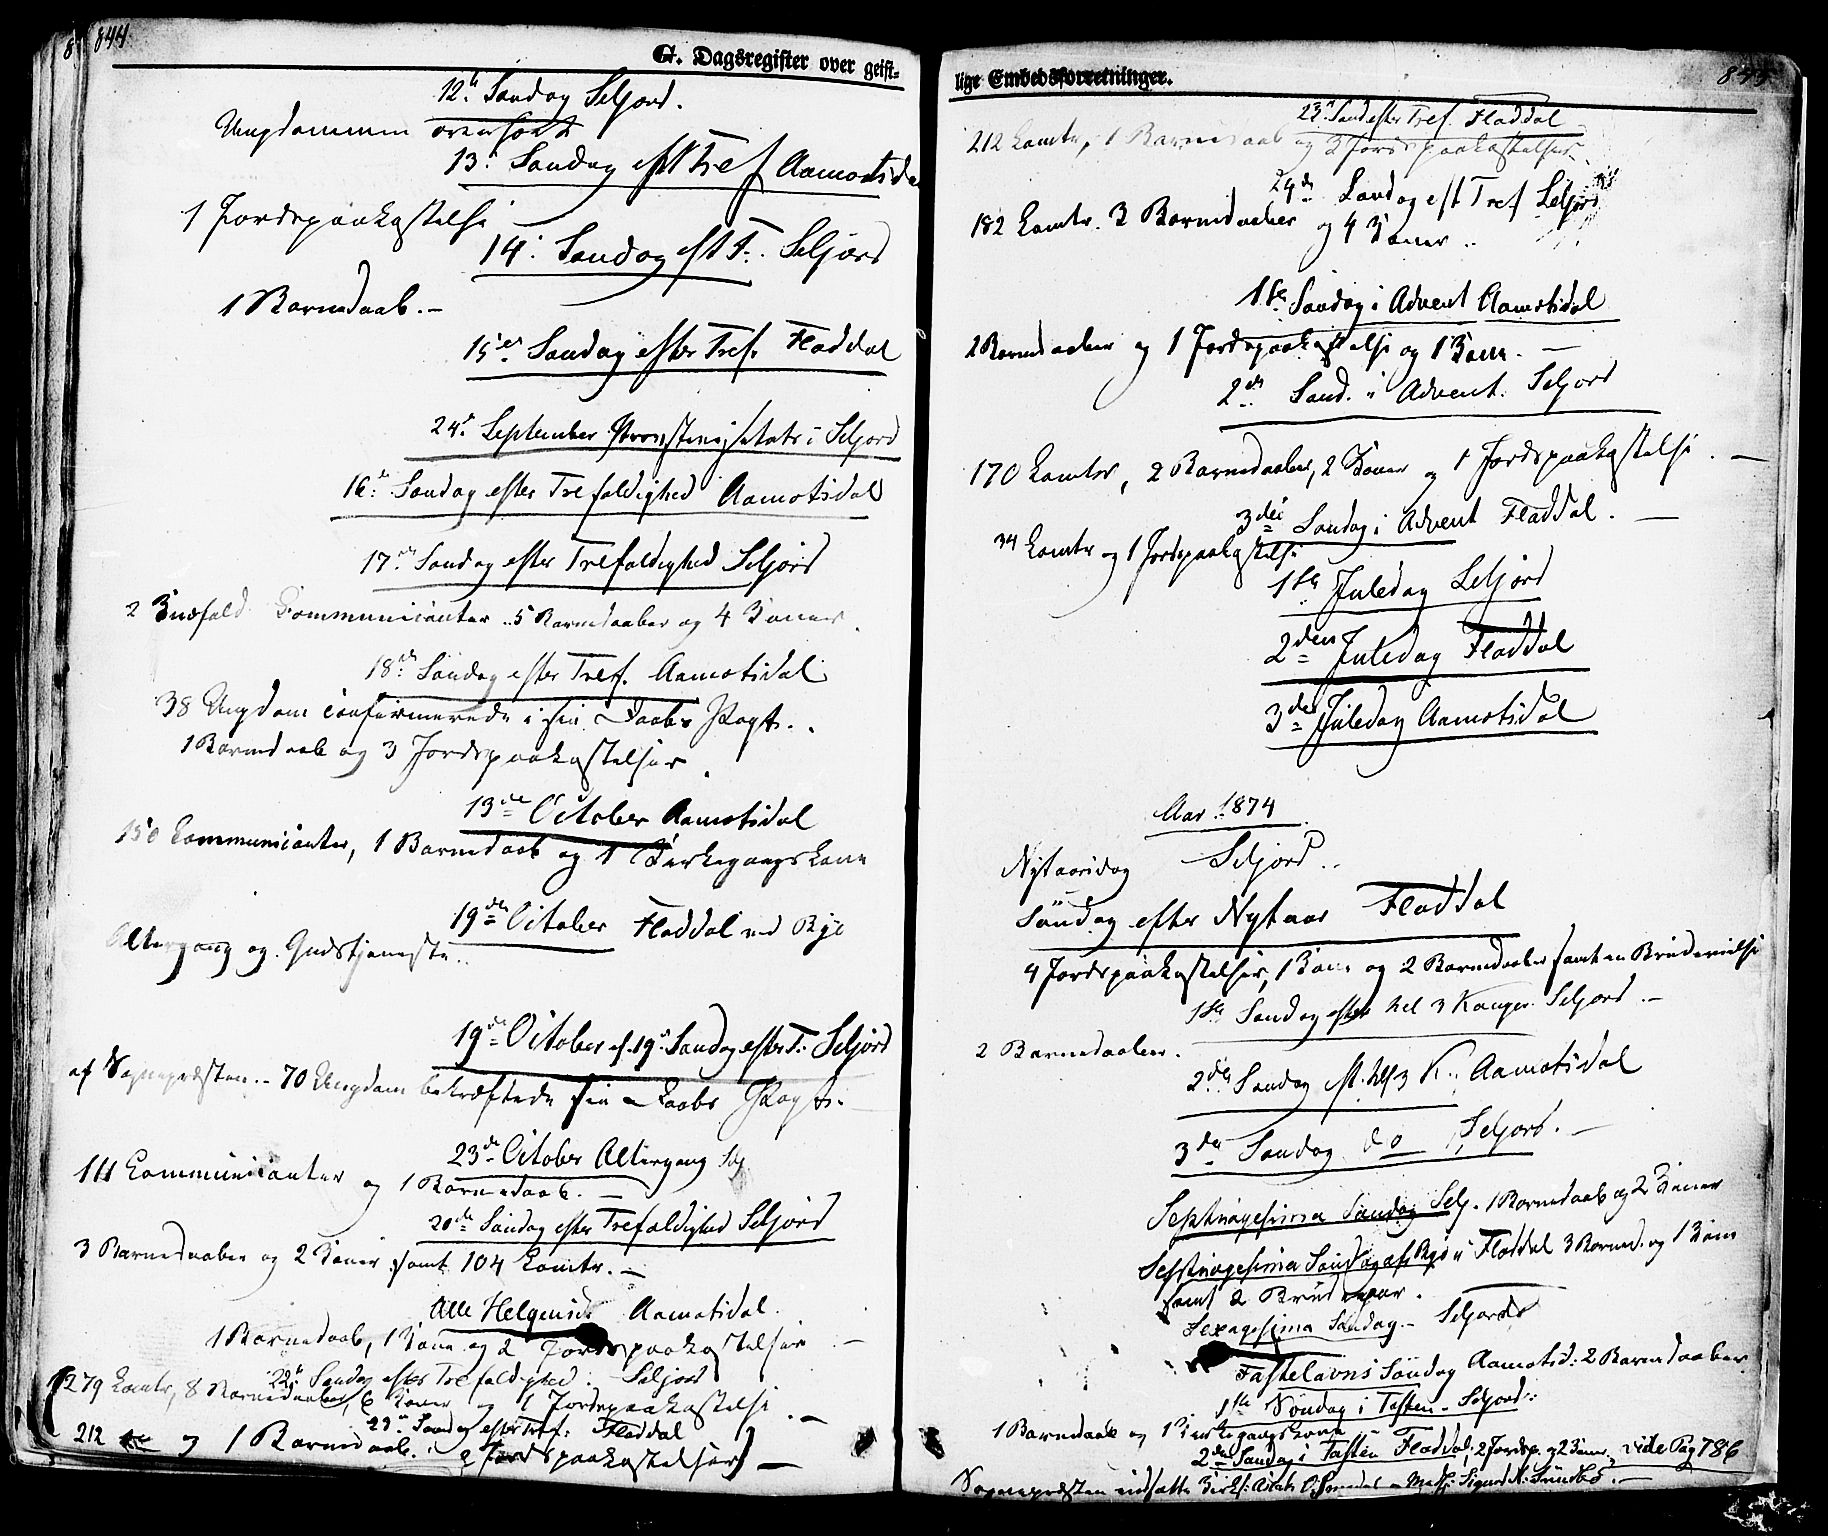 844
G. Dagsregister over geist-
12te Søndag Seljord.
Ungdommen overhørt
13. Søndag eft Tref Aamotsdal
1 Jordspaakastelse
14. Søndag eft T. Seljord
1 Barnedaab.
15de Søndag efter Tref. Fladdal
24de September i Seljord
16de Søndag efter Trefoldighed Aamotsdal
17de Søndag efter Trefoldighed Seljord
2 Communicanter 5 Barnedaaber og 4 Koner.
18de Søndag efter Tref. Aamotsdal
38 Ungdom confirmerede i sin Daabs Pagt.
1 Barnedaab og 3 Jordspaakastelser.
13de October Aamotsdal
150 Communicanter, 1 Barnedaab og 1 Kirkegangskone
19de October Fladdal ved Rye
Altergang og Gudstjeneste.
19de October 19de Søndag efter T. Seljord
af Sognepresten. 70 Ungdom bekræftede sin Daabs Pagt.
23de October Altergang Selj
111 Communicanter og 1 Barnedaab.
20de Søndag efter Trefoldighed Seljord
3 Barnedaaber og 2 Koner samt 104 Comtr.
Alle Helgensd Aamotsdal.
1 Barnedaab, 1 Kone og 2 Jordspaakastelser
22de Søndag efter Trefoldighed. Seljord
279 Comtr, 8 Barnedaaber, 6 Koner og 1 Jordspaakastelse.
23de Søndag efter Tref: Fladdal
212 og 1 Barnedaab. 2 Jordspaakastelser
845
lige Embedsforretninger.
23de Sønd efter Tref. Fladdal
212 Comtr, 1 Barnedaab og 2 Jordspaakastelser
24de Søndag eft Tref Seljord
182 Comtr. 3 Barnedaaber og 4 Koner
1ste Søndag i Advent Aamotsdal
2 Barnedaaber og 1 Jordspaakastelse og 1 Kone.
2de Sønd. i Advent. Seljord
170 Comtr, 2 Barnedaaber, 2 Koner og 1 Jordspaakastelse.
3die Søndag i Advent Fladdal.
34 Comtr og 1 Jordspaakastelse
1ste Juledag Seljord
2den Juledag Fladdal
3de Juledag Aamotsdal
Aar 1874
Nytaarsdag Seljord
Søndag efter Nytaar Fladdal
4 Jordspaakastelser, 1 Kone og 2 Barnedaaber samt en Brudevielse
1ste Søndag efter hel 3 Konger Seljord.
2 Barnedaaber.
2den Søndag eft. hel 3 K. Aamotsdal
3de Søndag do Seljord.
Septuagesima Søndag Selj. 1 Barnedaab og 2 Koner
Septuagesima Søndag af Ryes i Fladdal 3 Barned. og 1 Kone
samt 2 Brudepar.
Sexagesima Søndag Seljord
Fastelavns Søndag Aamotsd: 2 Barnedaaber
1ste Søndag i Fasten Seljord.
1 Barnedaab og 1 Kirkegangskone
2de Søndag i Fasten Fladdal, 2 Jordsp. og 2 Koner, vide Pag 786
Sognepresten indsatte